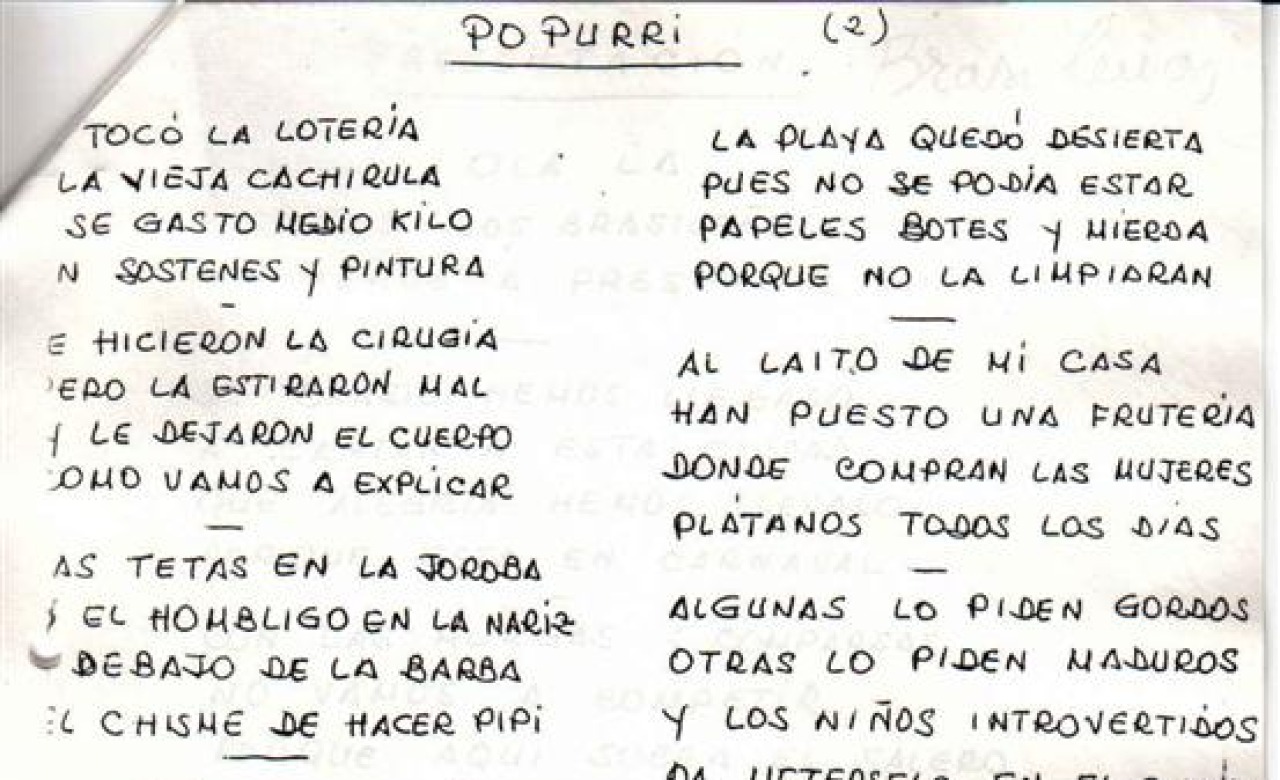 POPURRi (2)
TOCÓ LA LOTERÍA
LA VIEJA CACHIRULA
SE GASTO MEDIO KILO
N SOSTENES Y PINTURA
E HICIERON LA CIRUGIA
ERO LA ESTIRARON MAL
Y LE DEJARON EL CUERPO
OMO VAMOS A EXPLICAR
AS TETAS EN LA JOROBA
EL HOMBLIGO EN LA NARIZ
DEBAJO DE LA BARBA
EL CHISME DE HACER PIPI
LA PLAYA QUEDÓ DESIERTA
PUES NO SE PODÍA ESTAR
PAPELES BOTES Y MIERDA
PORQUE NO LA LIMPIARAN
AL LAITO DE MI CASA
HAN PUESTO UNA FRUTERIA
DONDE COMPRAN LAS MUJERES
PLÁTANOS TODOS LOS DIAS
ALGUNAS LO PIDEN GORDOS
OTRAS LO PIDEN MADUROS
Y LOS NIÑOS INTROVERTIDOS